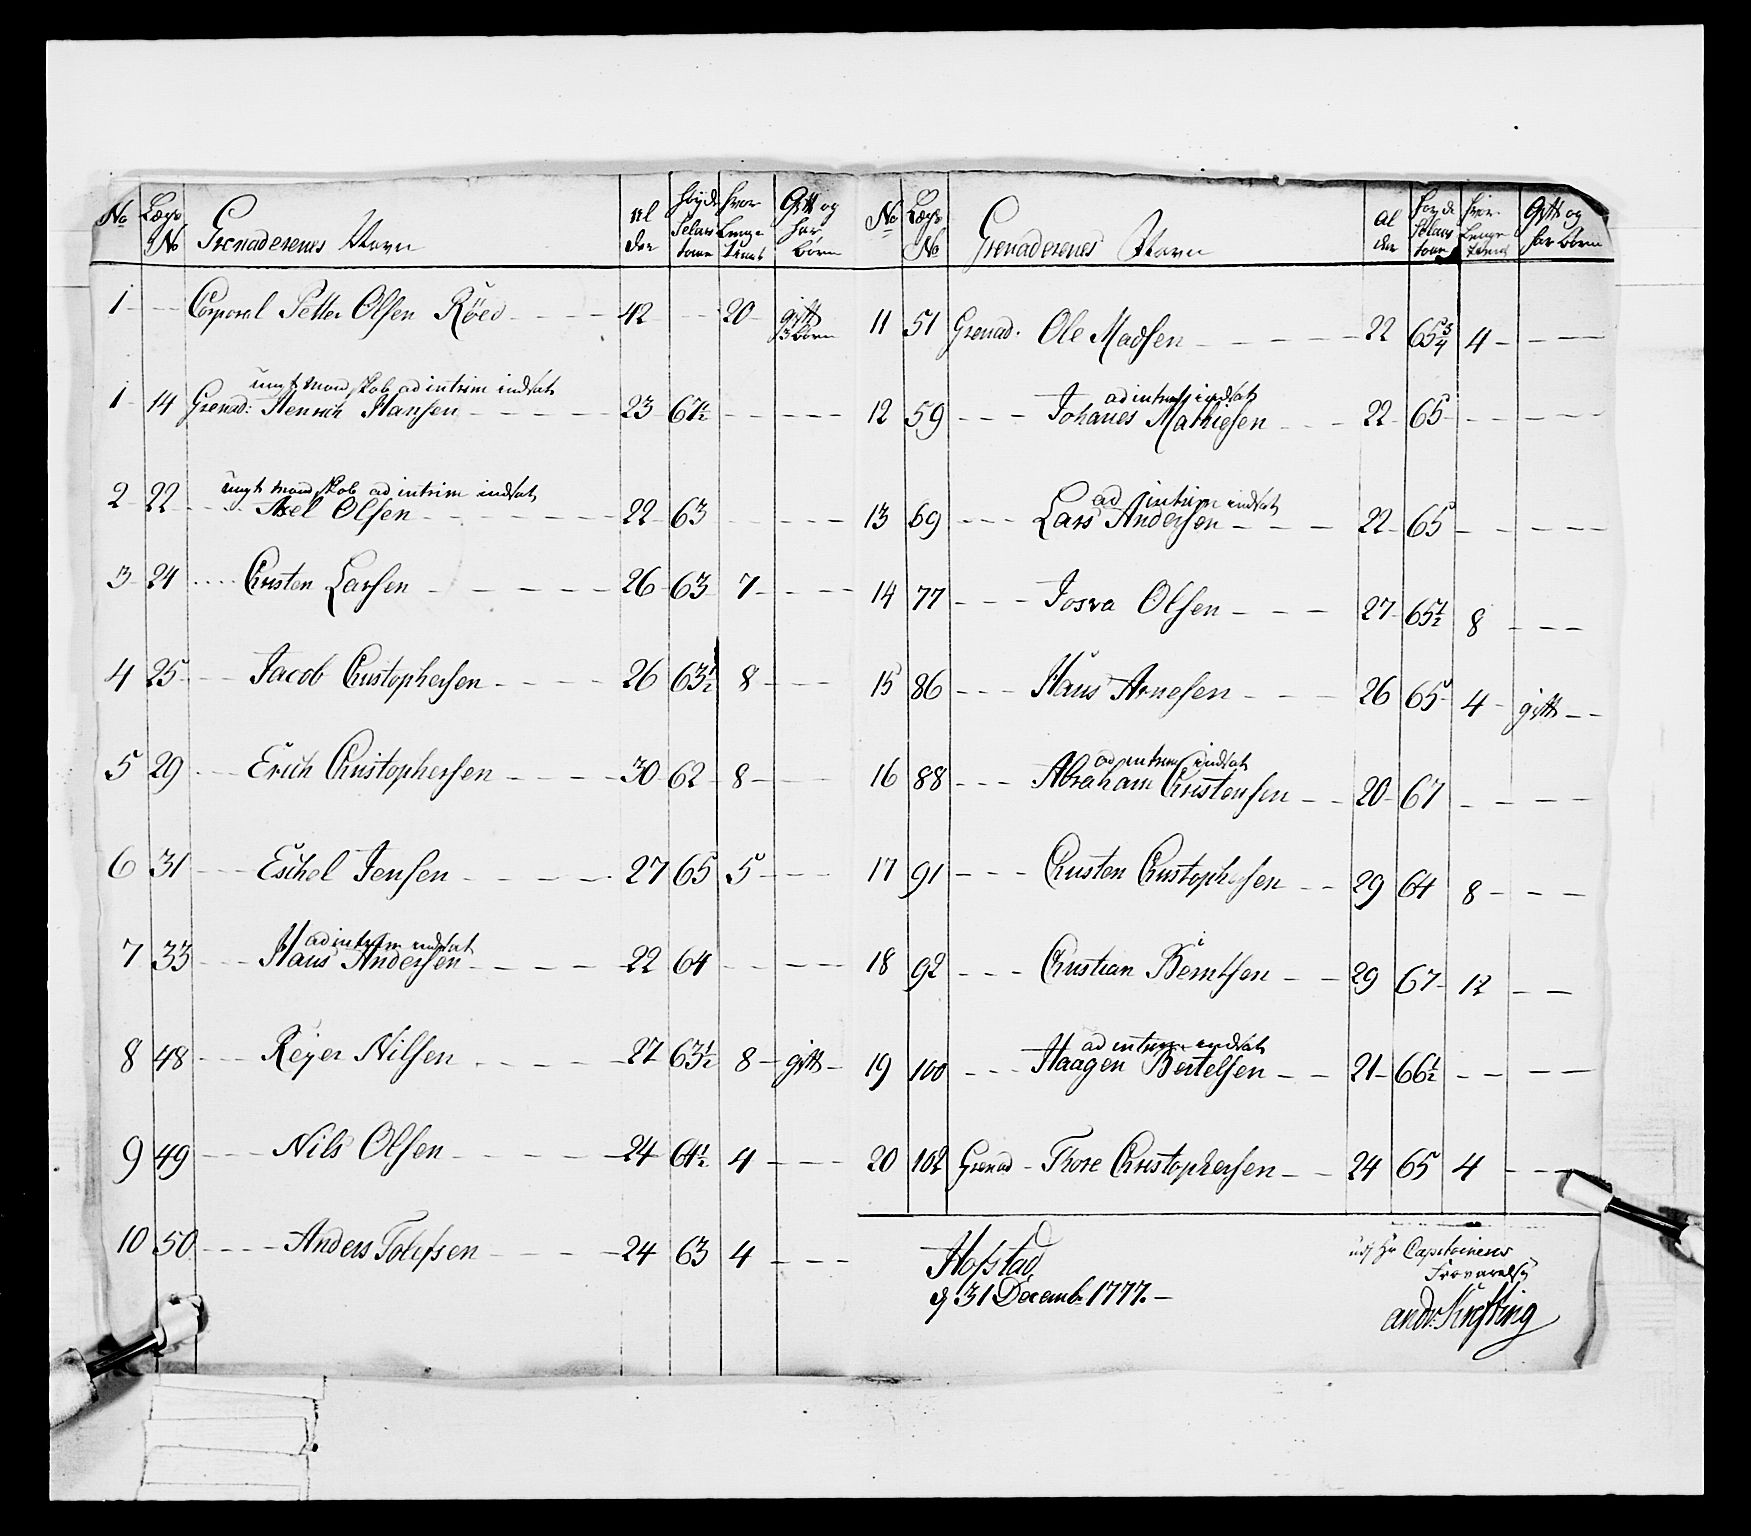 No Lægs No Grenaderenes Navn Al der Høyde Selavs tome hvor Længe tient Gift og har Börn
1 - Corporal Petter Olsen Röed 42 - 20 gift 3 Börn
ungt mandskab ad intrim indsat
1 14 Grenad: Henrich Hansen 23 67½
ungt mandskab ad intrim indsat
2 22 Axel Olsen 22 63
3 24 Christen Larsen 26 63 7
4 25 Jacob Christophersen 26 63½ 8
5 29 Erich Christophersen 30 62 8
6 31 Eschel Jensen 27 65 5
ad intrim indsat
7 33 Hans Andersen 22 64
8 48 Reyer Nilsen 27 63½ 8 gift
9 49 Nils Olsen 24 64½ 4
10 50 Anders Tolefsen 24 63 4
No Lægs No Grenaderenes Navn Al der Høyde Selavs tome hvor Længe tient Gift og har Börn
11 51 Grenad. Ole Madsen 22 65¾ 4
ad intrim indsat
12 59 Johanes Mathiesen 22 65
ad intrim indsat
13 69 Lars Andersen 22 65
14 77 Josva Olsen 27 65½ 8
15 86 Hans Arnesen 26 65 4 gift
ad intrim indsat
16 88 Abraham Christensen 20 67
17 91 Christen Christophersen 29 64 8
18 92 Christian Berntsen 29 67 12
ad intrim indsat
19 100 Haagen Bertelsen 21 66½
20 102 Grenad Thore Christophersen 24 65 4
Hofstad
d 31 Decemb. 1777.
udj Hr Capitainens
Fraværelse
andr. Krefting